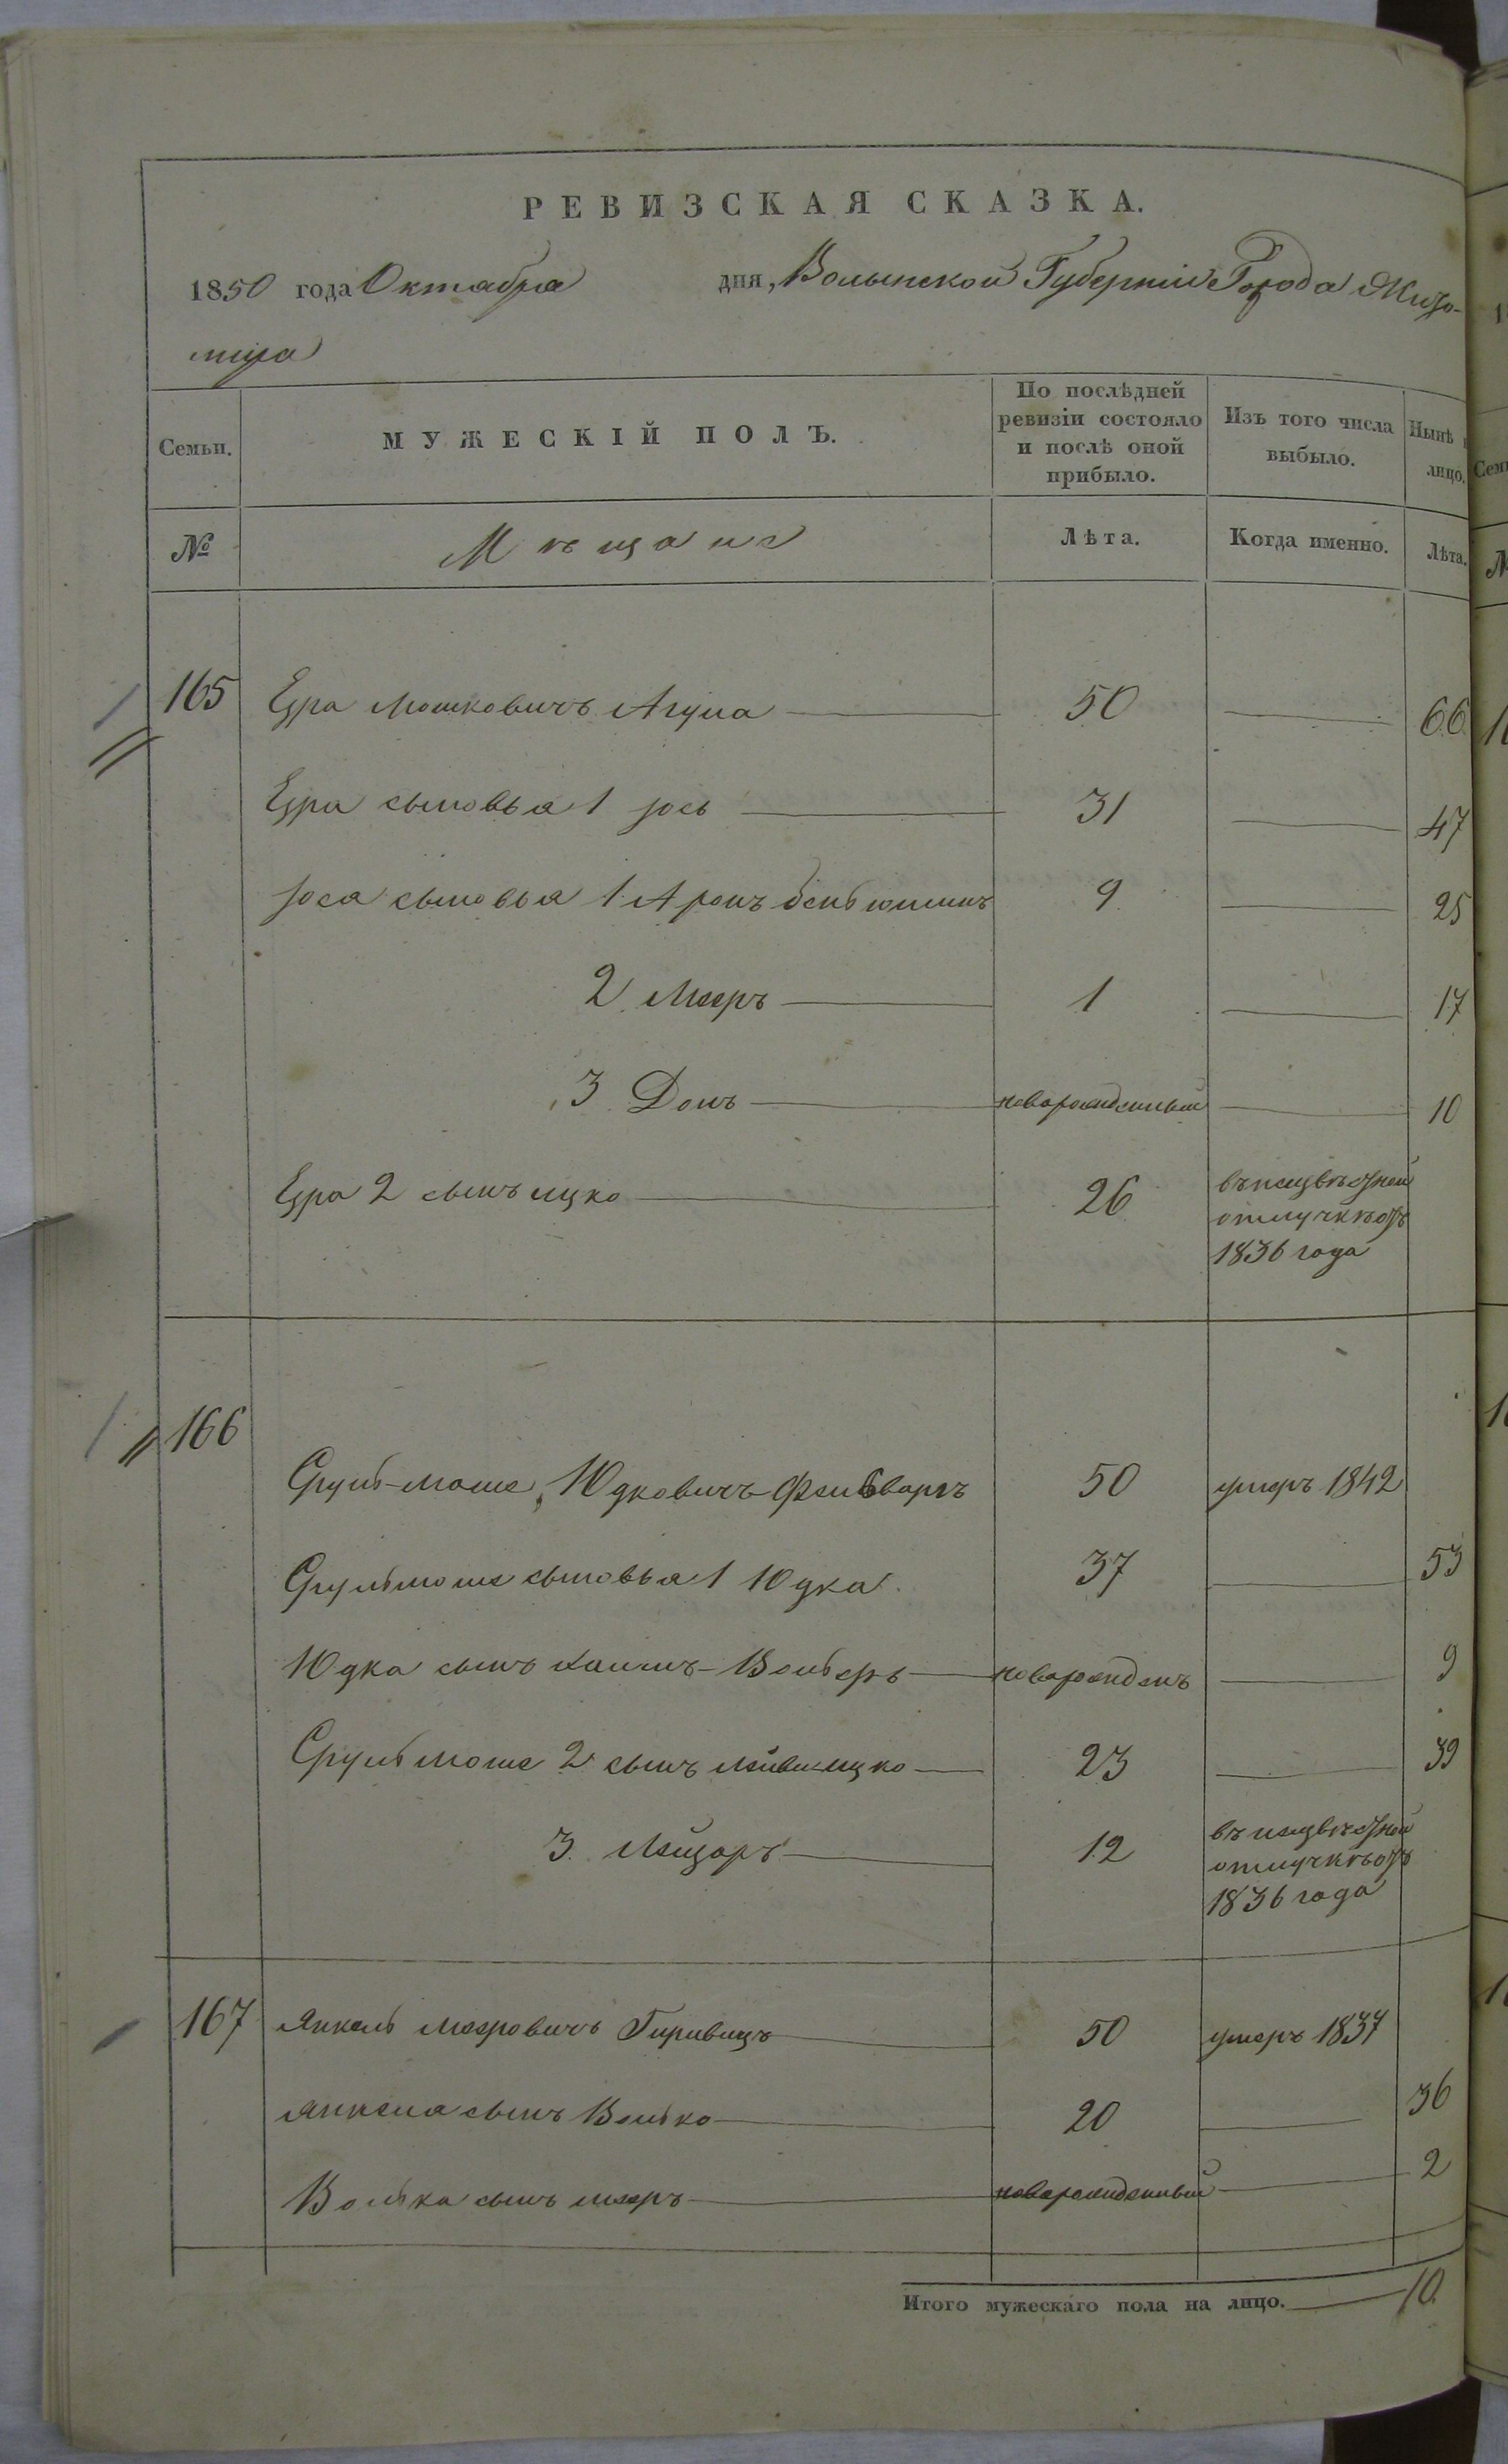 РЕВИЗСКАЯ СКАЗКА.
1850 года Октября дня, Волынской Губерніи Города Жито-
мира
Семьи. МУЖЕСКІЙ ПОЛЪ. По послѣдней ревизіи состояло и послѣ оной прибыло. Изъ того числа выбыло. Нынѣ лицо.
№ Мѣщане Лѣта. Когда именно. Лѣта.
165 Ецра Мошковичъ 50 66
Ецра сыновья 1 Іось 31 47
Іося сыновья 1 Аронъ беньюминъ 9 25
2 Мееръ 1 17
3 Донъ новорожденный 10
Ецра 2 сынъ ицко 26 въ неизвѣстной
отлучкѣ съ
1836 года
166
Сруль-Моше Юдковичъ Фенбваргъ 50 умеръ 1842
Срульмоше сыновья 1 Юдка 37 53
Юдка сынъ хаимъ-Вольеръ новорожденъ 9
Срульмоше 2 сынъ лейви-ицко 23 39
3 Лейзоръ 12 въ неизвѣстной
отлучкѣ съ
1836 года
167 Янкель Мееровичъ Гирвицъ 50 умеръ 1837
Янкеля сынъ Волько 20 36
Волька сынъ мееръ новорожденный 2
Итого мужескаго пола на лицо. 10